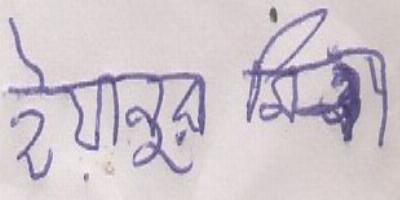 ইয়ানুর মিঞা